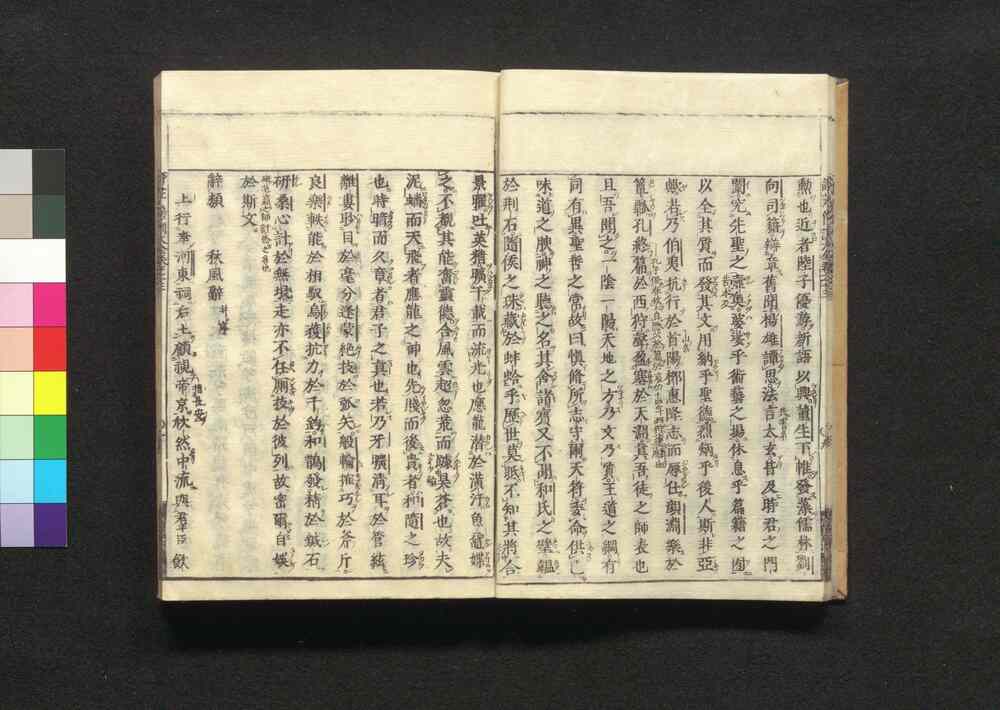 勲也近者陸子優游新語以興董生下帷發藻儒林劉
向司籍辯章舊聞楊雄譚思法言太玄皆及時君之門
闈究先聖之壼奧婆娑乎術藝之場休息乎篇籍之囿
以全其質而發其文用納乎聖德烈炳乎後人斯非亞
與若乃伯夷抗行於首陽柳惠降志而辱仕顏淵樂於
簞瓢孔終篇於西狩聲盈塞於天淵眞吾徒之師表也
且吾聞之一陰一陽天地之方乃文乃質王道之綱有
同有異聖哲之常故曰愼脩所志守爾天符委命供已
味道之腴神之聽之名其舍諸賓又不聞和氏之璧韞
於荊石隨侯之珠藏於蚌蛤乎歷世莫眡不知其將含
景曜吐英精曠千載而流光也應龍潛於潢汙魚黿媟
之不覩其能奮靈德合風雲超忽荒而躆昊蒼也故夫
泥蟠而天飛者應龍之神也先賤而後貴者和隨之珍
也時暗而久章者君子之眞也若乃牙曠淸耳於管絃
離婁眇目於毫分逢蒙絕技於弧矢般輸搉巧於斧斤
良樂軼能於相馭烏獲抗力於千鈞和鵲發精於鍼石
研桑心計於無垠走亦不任厠技於彼列故密爾自娛
於斯文
辭類　秋風辭 并序
上行幸河東祠后土顧視帝京欣然中流與羣臣飲